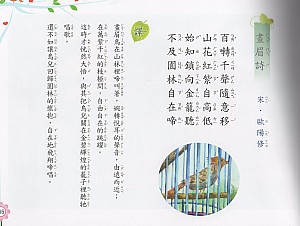 畫眉詩
宋．歐陽修
百囀千聲隨意移
山花紅紫自高低
始知鎖向金籠聽
不及園林自在啼
譯
畫眉鳥在山林裡啼叫著，婉轉悅耳的聲音，由遠而近；
在萬紫千紅的枝椏間，自由自在的跳躍。
這時才恍然大悟，與其把鳥兒關在金碧輝煌的籠子裡聽牠
唱歌，
還不如讓鳥兒回歸園林的懷抱，自在地飛翔啼唱。